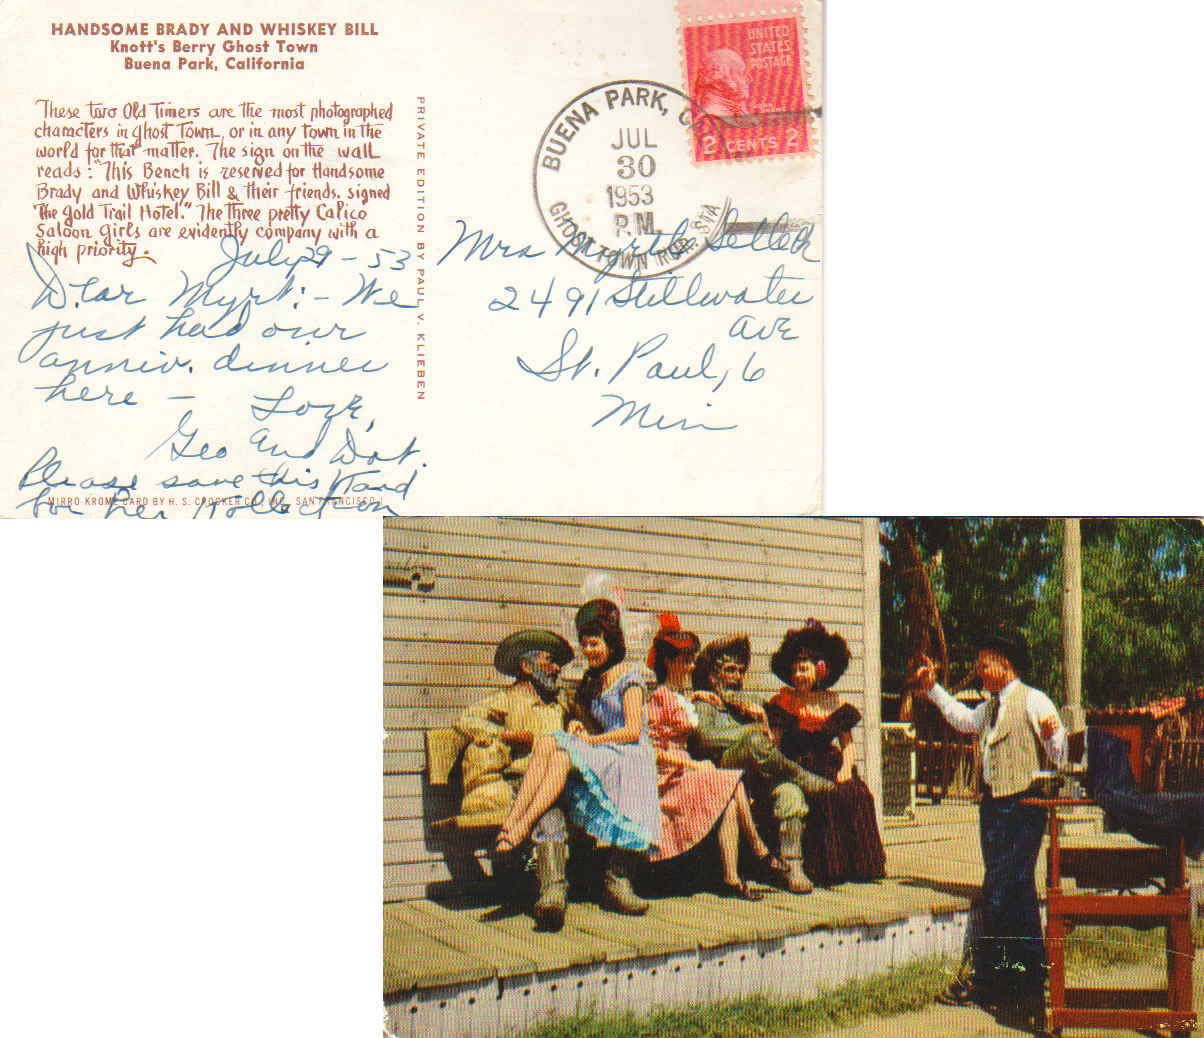 HANDSOME BRADY AND WHISKEY BILL
Knott's Berry Ghost Town
Buena Park, California
These two Old Timers are the most photographed
characters in Ghost Town, or in any town in the
world for that matter. The sign on the wall
reads: "This Bench is reserved for Handsome
Brady and Whiskey Bill & their friends. signed
The Gold Trail Hotel." The three pretty Calico
Saloon Girls are evidently company with a
high priority.
PRIVATE EDITION BY PAUL V. KLIEBEN
July 29 - 53
Dear Myrt: - We
just had our
anniv. dinner
here - Love,
Geo and Dot.
Please save this Kard
for her Kollection
MIRRO-KROME CARD BY H. S. CROCKER CO., INC., SAN FRANCISCO-1
UNITED
STATES
POSTAGE
JOHN ADAMS
2 CENTS 2
BUENA PARK, CA
JUL
30
1953
P.M.
GHOST TOWN RUR. STA
Mrs Myrtle
2491 Stillwater
Ave
St. Paul, 6
Minn